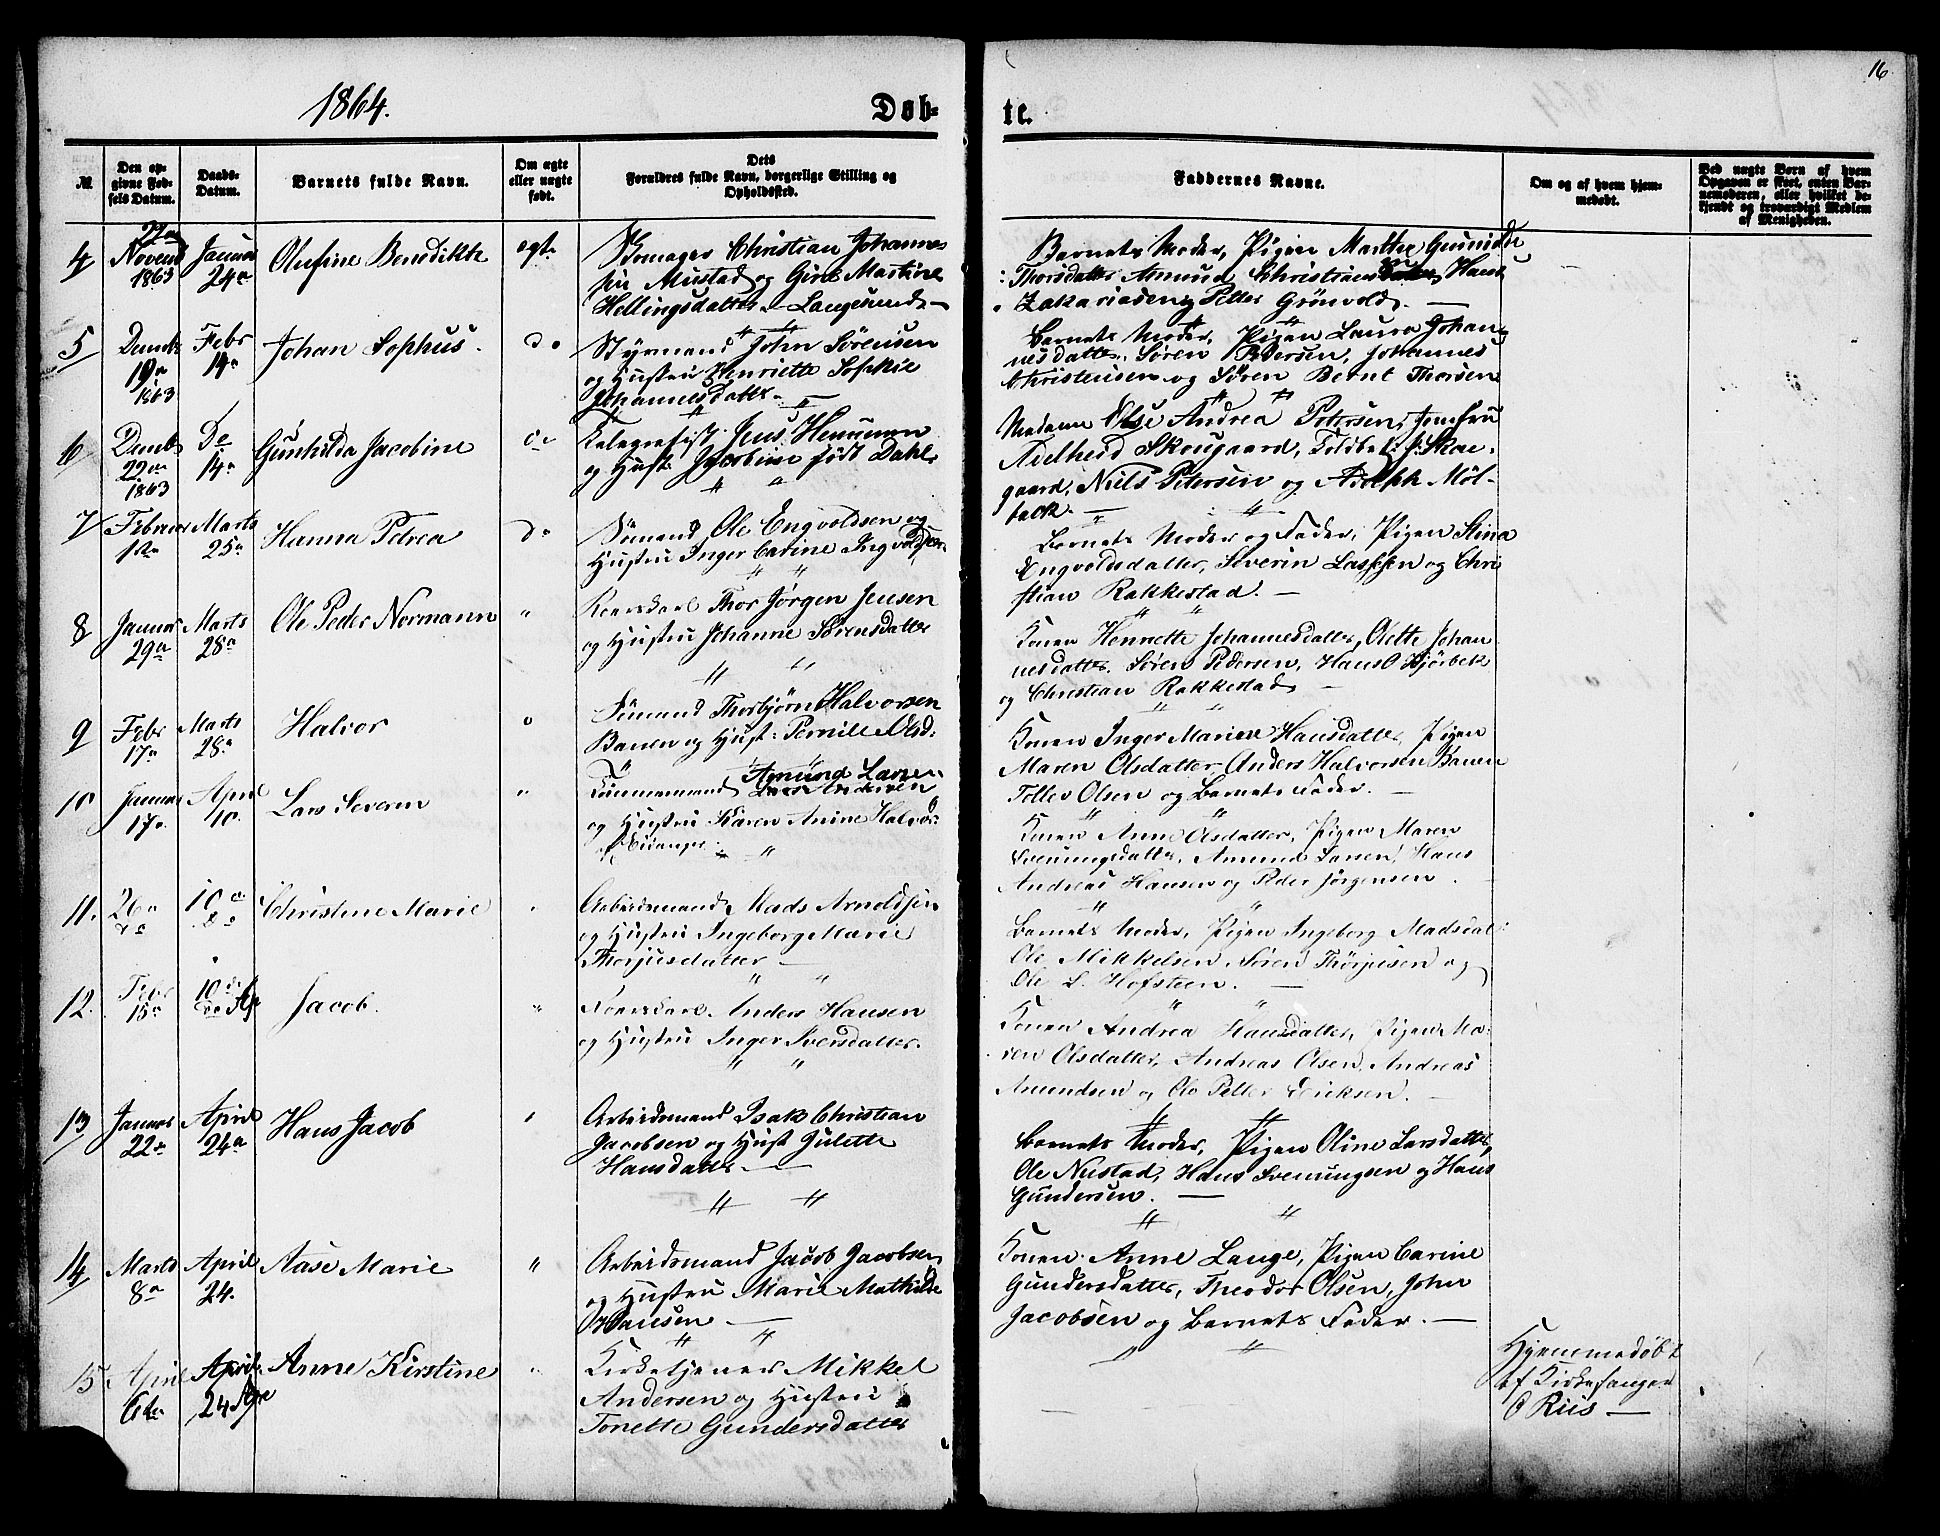 1864.
Døb-
te.
16
№
Den op-
givne Fød-
sels Datum.
Daabs-
Datum.
Barnets fulde Navn.
Om ægte
eller uægte
født.
Dets
Forældres fulde Navn, borgerlige Stilling og
Opholdssted.
Faddernes Navne.
Om og af hvem hjem-
medøbt.
Ved uægte Børn af hvem
Opgaven er skeet, enten Bar-
nemoderen, eller hvilket be-
kjendt og troværdigt Medlem
af Menigheden.
4
22de
Novemb
1863
Januar
24de
Olufine Benedikte
ægte
Skomager Christian Johannes
sen Mustad og Gine Martine
Hellingsdatter Langesund
Barnets Moder, Pigen Marthe Gunnilde
Thorsdatter Amund Christiansen, Hans
Zakariasen og Petter Grönvold.
5
Decemb
19de
1863
Febr
14de
Johan Sophus.
do
Styrmand John Sörensen
og Hustru Henriette Sophie
Johannesdatter
Barnets Moder, Pigen Laura Johan-
nesdatter, Sören Pedersen, Johannes
Christensen og Sören Bernt Thorsen
6
Decemb
22de
1863
Do
14de
Gunhilda Jacobine
Telegrafist Jens Henrum
og Hust. Jacobine født Dahl.
Madame Else Andrea Petersen, Jomfru
Adelheid Skougaard, Toldbet: J: Skou-
gaard, Niels Petersen og Adolph Möl-
back.
7
Februar
1ste
Marts
25de
Hanna Petrea
do
Sömand Ole Engvoldsen og
Hustru Inger Carine Ingvoldsen
Barnets Moder og Fader, Pigen Stina
Engvoldsdatter, Severin Lassen og Chri
stian Rakkestad.
8
Januar
29de
Marts
28de
Ole Peder Normann
"
Thor Jörgen Jensen
og Hustru Johanne Sörensdatter
Konen Henrette Johannesdatter, Olette Johan
nesdatter. Sören Pedersen, Hans Hjörbek
og Christian Rakkestad
9
Febr
17de
Marts
28de
Halvor
Sömand Thorbjörn Halvorsen
Banen og Hust: Pernille Olsd:
Konen Inger Marie Hansdatter, Pigen
Maren Olsdatter, Anders Halvorsen Banen
Tollev Olsen og Barnets Fader.
10
Januar
17de
April
10.
Lars Severin
"
Tömmermand Amund Larsen
og Hustru Karen Anine Halvor:
Konen Anne Olsdatter, Pigen Maren
Svenningsdatter, Amund Larsen, Hans
Andreas Hansen og Peder Jörgensen.
11.
26de
do
10de
do
Christine Marie
Arbeidsmand Mads Arnoldsen
og Hustru Ingeborg Marie
Thorjusdatter
Barnets Moder, Pigen Ingeborg Madsdat:
Ole Mikkelsen, Sören Thorjusen og
Ole L. Hofsteen.
12.
Febr
15de
10de
do Ap
Jacob.
"
Anders Hansen
og Hustru Inger Iversdatter.
Konen Andrea Hansdatter, Pigen Ma-
ren Olsdatter, Andreas Olsen, Andreas
Amundsen og Ole Petter Eriksen.
13
Januar
22de
April
24de
Hans Jacob
Arbeidsmand Isak Christian
Jacobsen og Hust Julette
Hansdatter
Barnets Moder, Pigen Oline Larsdatter,
Ole Nustad, Hans Svenningsen og Hans
Gundersen.
14
Marts
8de
April
24.
Aase Marie
"
Arbeidsmand Jacob Jacobsen
og Hustru Marie Mathilde
Hansen
Konen Anne Lange, Pigen Carine
Gundersdatter, Theodor Olsen, John
Jacobsen og Barnets Fader.
15
April
6te
April
24de
Anne Kirstine
Kirketjener Mikkel
Andersen og Hustru
Tonette Gundersdatter
Hjemmedøbt
af Kirkesanger
O Riis